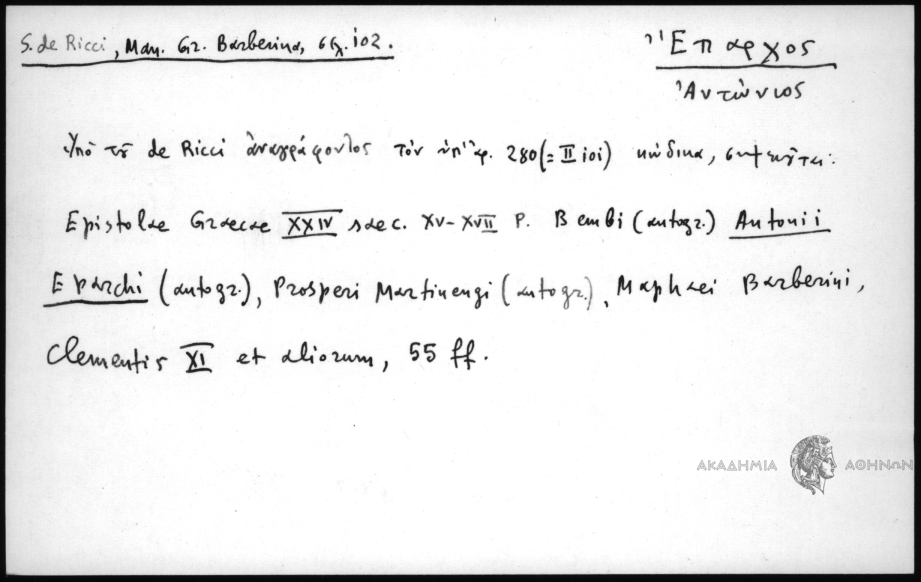 S. de Ricci, Man. Gr. Barberina, σελ. 102.
Ἔπαρχος
Ἀντώνιος
Ὑπὸ τοῦ de Ricci ἀναγράφοντος τὸν ὑπ' ἀρ. 280 (= II 101) κώδικα, σημειοῦται:
Epistolae Graecae XXIV saec. XV-XVII P. Bembi (autogr.) Antonii
Eparchi (autogr.), Prosperi Martinengi (autogr.), Maphaei Barberini,
Clementis XI et aliorum, 55 ff.
ΑΚΑΔΗΜΙΑ ΑΘΗΝΩΝ